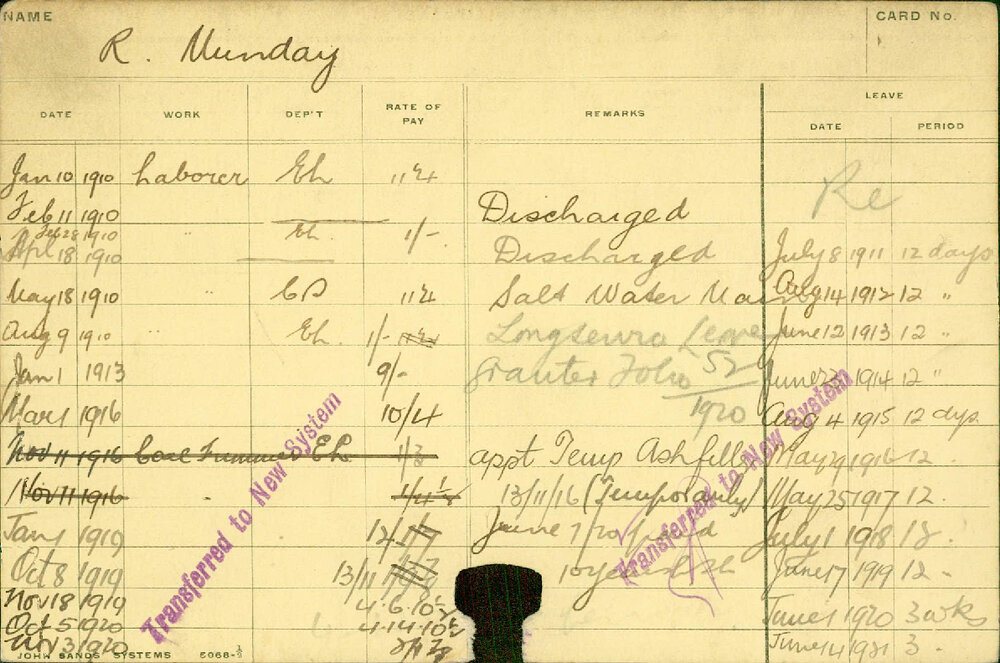 NAME
CARD No.
R. Munday
DATE WORK DEP'T RATE OF PAY REMARKS LEAVE
DATE PERIOD
Jan 10 1910 Laborer Eh 11¼ Re
Feb 11 1910 Discharged
Feb 28 1910 " Eh. 1/-
Apl 18 1910 Discharged July 8 1911 12 days
May 18 1910 " 11¼ Salt Water Aug 14 1912 12 "
Aug 9 1910 " Eh. 1/- June 12 1913 12 "
Jan 1 1913 9/- Folio 52/1920 June 1914 12 "
Mar 1 1916 10/4 Aug 4 1915 12 dys.
Nov 11 1916 Coal Eh 1/3 appt Temp Ashfield May 1916 12.
Nov 11 1916 13/11/16 (Temporarily) May 25 1917 12.
Jan 1 1919 12/ June 7/20 July 1 1918 12.
Oct 8 1919 13/11 June 17 1919 12 -
Nov 18 1919 4.6.10½ June 1 1920 3 wks
Oct 5 1920 4.14.10½
Nov 3 1920 June 14 1921 3 -
Transferred to New System
Transferred to New System
JOHN SANDS SYSTEMS